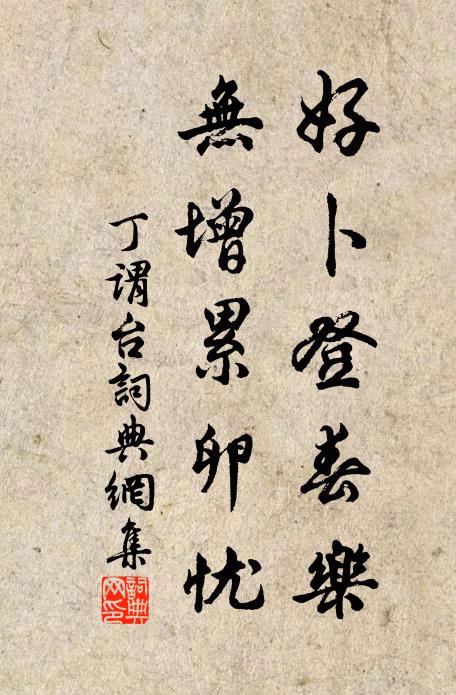 好卜登春樂
無增累卵忧
丁謂台詞典網集
詞典网印